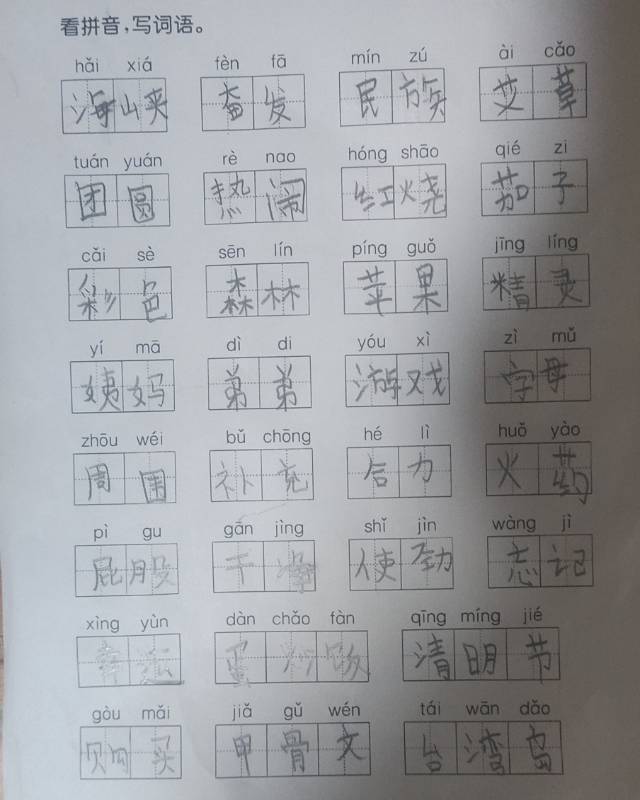 看拼音，写词语。
hǎi xiá fèn fā mín zú ài cǎo
海峡 奋发 民族 艾草
tuán yuán rè nao hóng shāo qié zi
团圆 热闹 红烧 茄子
cǎi sè sēn lín píng guǒ jīng líng
彩色 森林 苹果 精灵
yí mā dì di yóu xì zì mǔ
姨妈 弟弟 游戏 字母
zhōu wéi bǔ chōng hé lì huǒ yào
周围 补充 合力 火药
pì gu gān jìng shǐ jìn wàng jì
屁股 干净 使劲 忘记
xìng yùn dàn chǎo fàn qīng míng jié
幸运 蛋炒饭 清明节
gòu mǎi jiǎ gǔ wén tái wān dǎo
购买 甲骨文 台湾岛